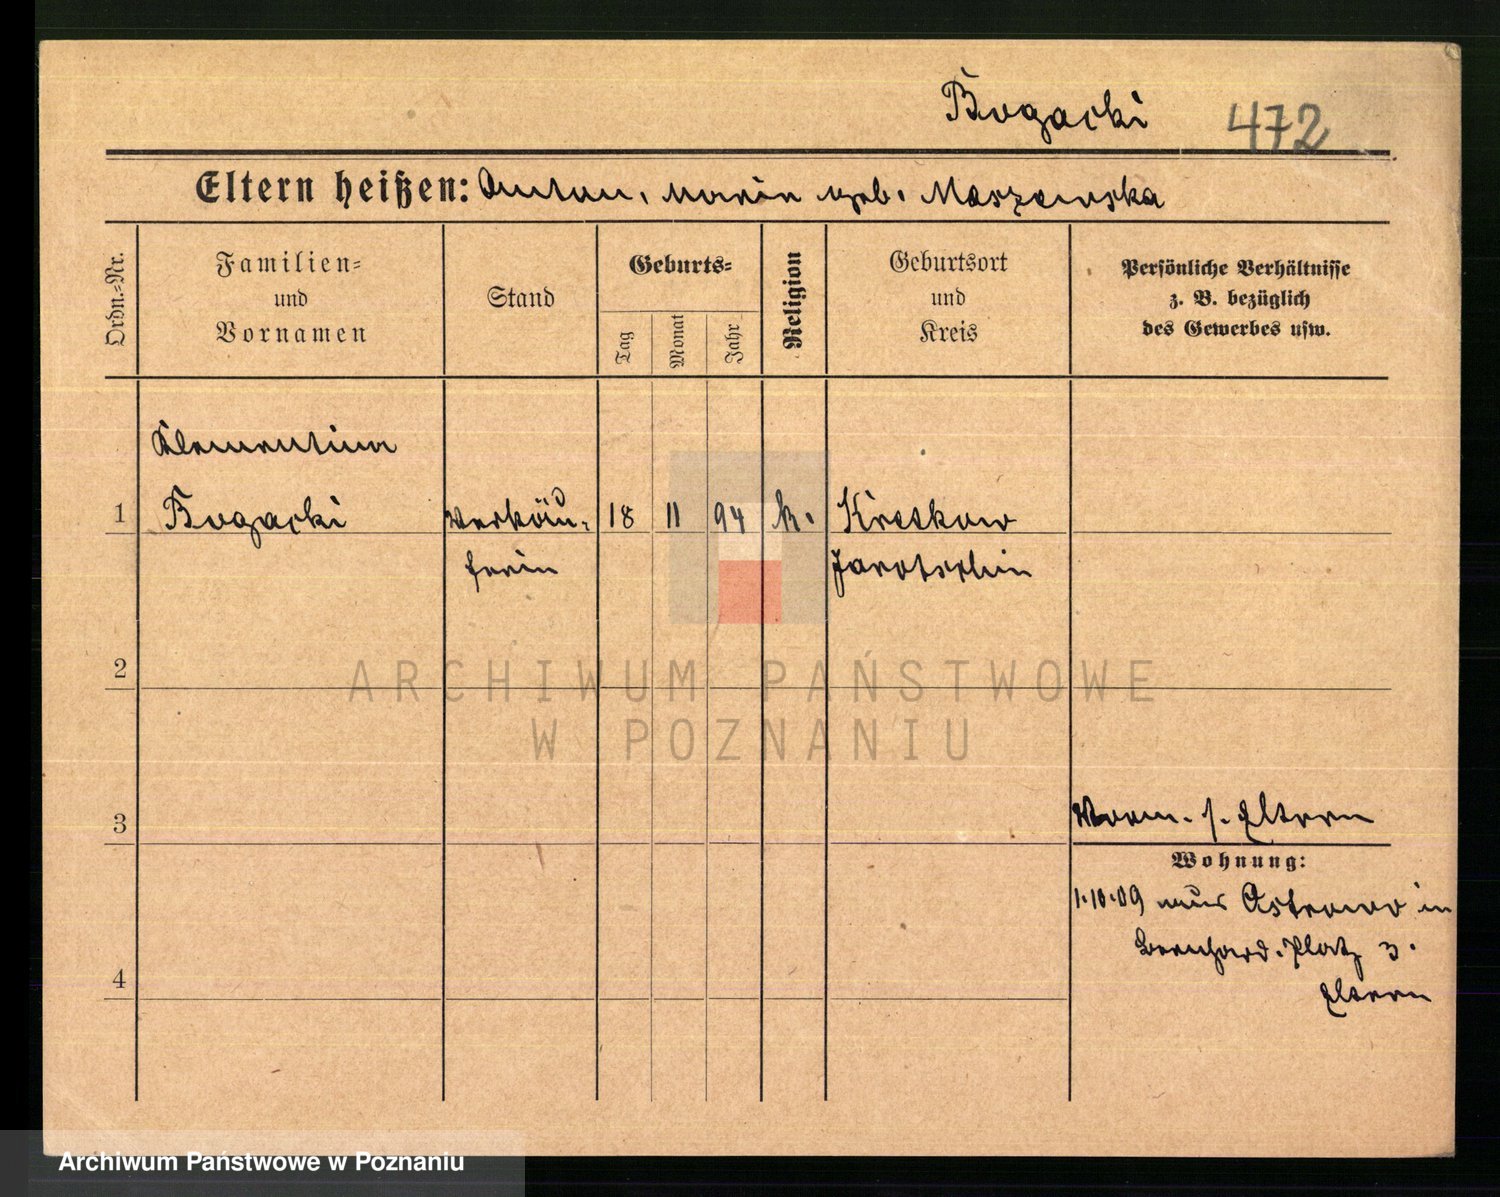 Bogacki 472
Eltern heißen: Anton, Marie geb. Maszewska
Ordn.=Nr.
Familien=
und
Vornamen
Stand
Geburts=
Tag
Monat
Jahr
Religion
Geburtsort
und
Kreis
Persönliche Verhältnisse
z. B. bezüglich
des Gewerbes usw.
Klementina
1 Bogacki Verkäu- 18 11 94 k. Kreskow
ferin Jarotschin
2
ARCHIWUM PAŃSTWOWE
W POZNANIU
3
Vorm. s. Eltern
Wohnung:
1.10.09 aus Ostrowo in
Bernhard. Platz 3.
4
Eltern
Archiwum Państwowe w Poznaniu